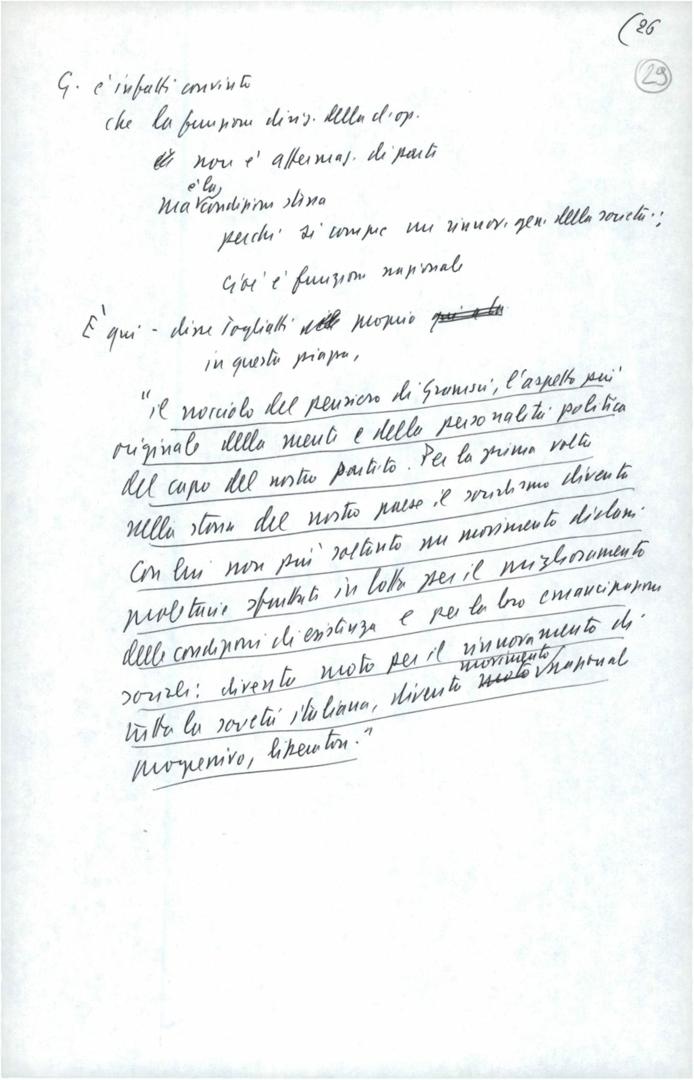 (26
29
G. è infatti convinto
che la funzione dirig. della cl. op.
non è affermaz. di parte
è la
ma condizione stessa
perché si compia un rinnov. gen. della società;
cioè è funzione nazionale
È qui - disse Togliatti proprio
in questa piazza,
"il nocciolo del pensiero di Gramsci, l'aspetto più
originale della mente e della personalità politica
del capo del nostro partito. Per la prima volta
nella storia del nostro paese il socialismo diventa
con lui non più soltanto un movimento di classi
proletarie sfruttate in lotta per il miglioramento
delle condizioni di esistenza e per la loro emancipazione
sociale: diventa moto per il rinnovamento di
movimento
tutta la società italiana, diventa moto nazionale
progressivo, liberatore."